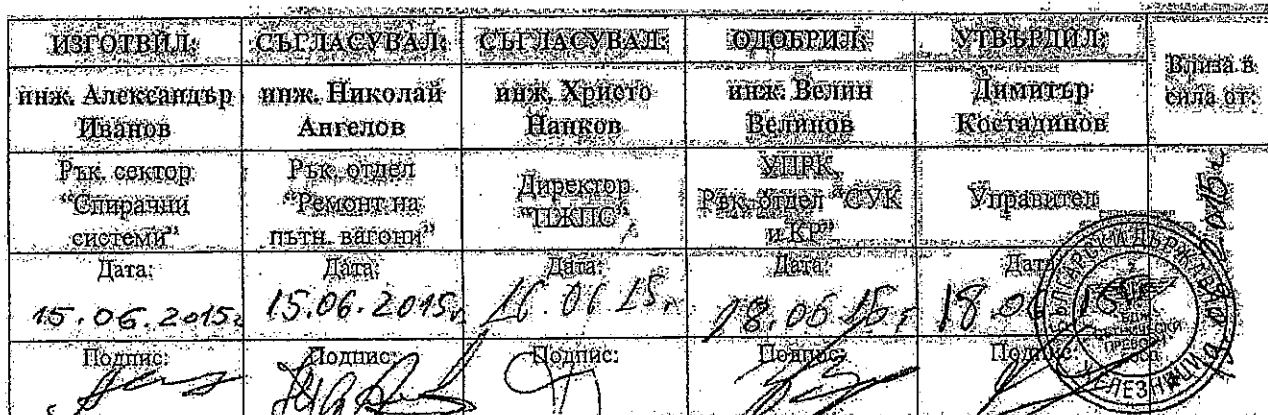 ИЗГОТВИЛ: СЪГЛАСУВАЛ: СЪГЛАСУВАЛ: ОДОБРИЛ: УТВЪРДИЛ:
Влиза в
сила от:
инж. Александър
Иванов
инж. Николай
Ангелов
инж. Христо
Нанков
инж. Велин
Велинов
Димитър
Костадинов
Рък. сектор
“Спирачни
системи”
Рък. отдел
“Ремонт на
пътн. вагони”
Директор
“ПЖПС”
УПРК,
Рък. отдел “СУК
и КР”
Управител
Дата: Дата: Дата: Дата: Дата:
15.06.2015г 15.06.2015г 16.06.15г 18.06.15г 18.06.15
Подпис: Подпис: Подпис: Подпис: Подпис: